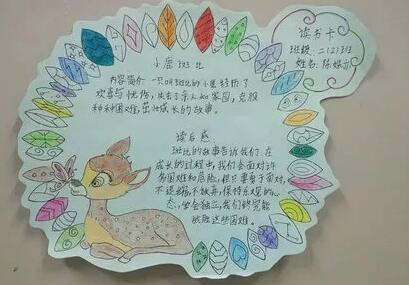 读书卡
班级：二（2）班
姓名：陈
小鹿班比
内容简介：一只叫班比的小鹿经历了
欢喜与忧伤，失去了亲人和家园，克服
种种困难，茁壮成长的故事。
读后感
班比的故事告诉我们：在
成长的过程中，我们会面对许
多困难和危险，但只要勇于面对，
不退缩，不放弃，保持乐观的心
态，学会独立，我们终究能
战胜这些困难。